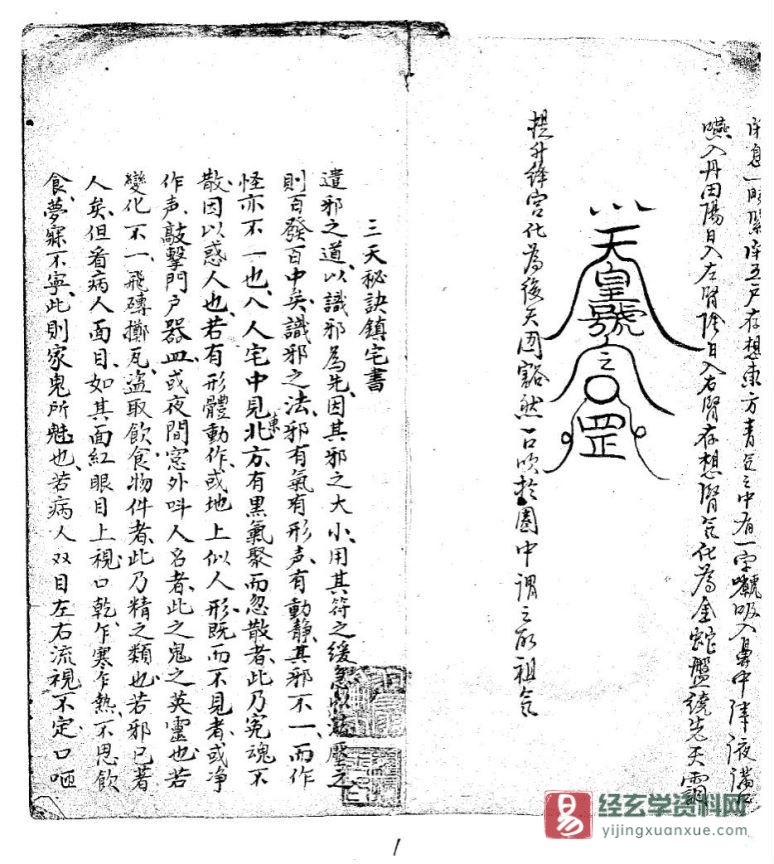 息一時緊閉五户存想東方青氣之中有一字吸入鼻中津液滿口
嚥入丹田陽日入左腎陰日入右腎存想腎氣化為金蛇盤繞先天
天皇號之罡
提升絳宮化為後天圆豁然一口吹於圈中謂之取祖氣
三天秘訣鎮宅書
遣邪之道、以識邪為先、因其邪之大小、用其符之緩急以鎮壓之
則百發百中矣、識邪之法、邪有氣有形声、有動靜、其邪不一、而作
怪亦不一也、入人宅中、見東北方、有黑氣聚而忽散者、此乃冤魂不
散、因以惑人也、若有形體動作、或地上似人形、既而不見者、或净
作声、敲擊門户器皿、或夜間窓外呌人名者、此之鬼之英靈也、若
變化不一、飛磚擲瓦、盗取飲食物件者、此乃精之類也、若邪已著
人矣、但看病人面目、如其面紅眼目上視、口乾、乍寒乍熱、不思飲
食、夢寐不寧、此則家鬼所魅也、若病人双目左右流視不定、口哑
1
易
经玄学资料网
yijingxuanxue.com